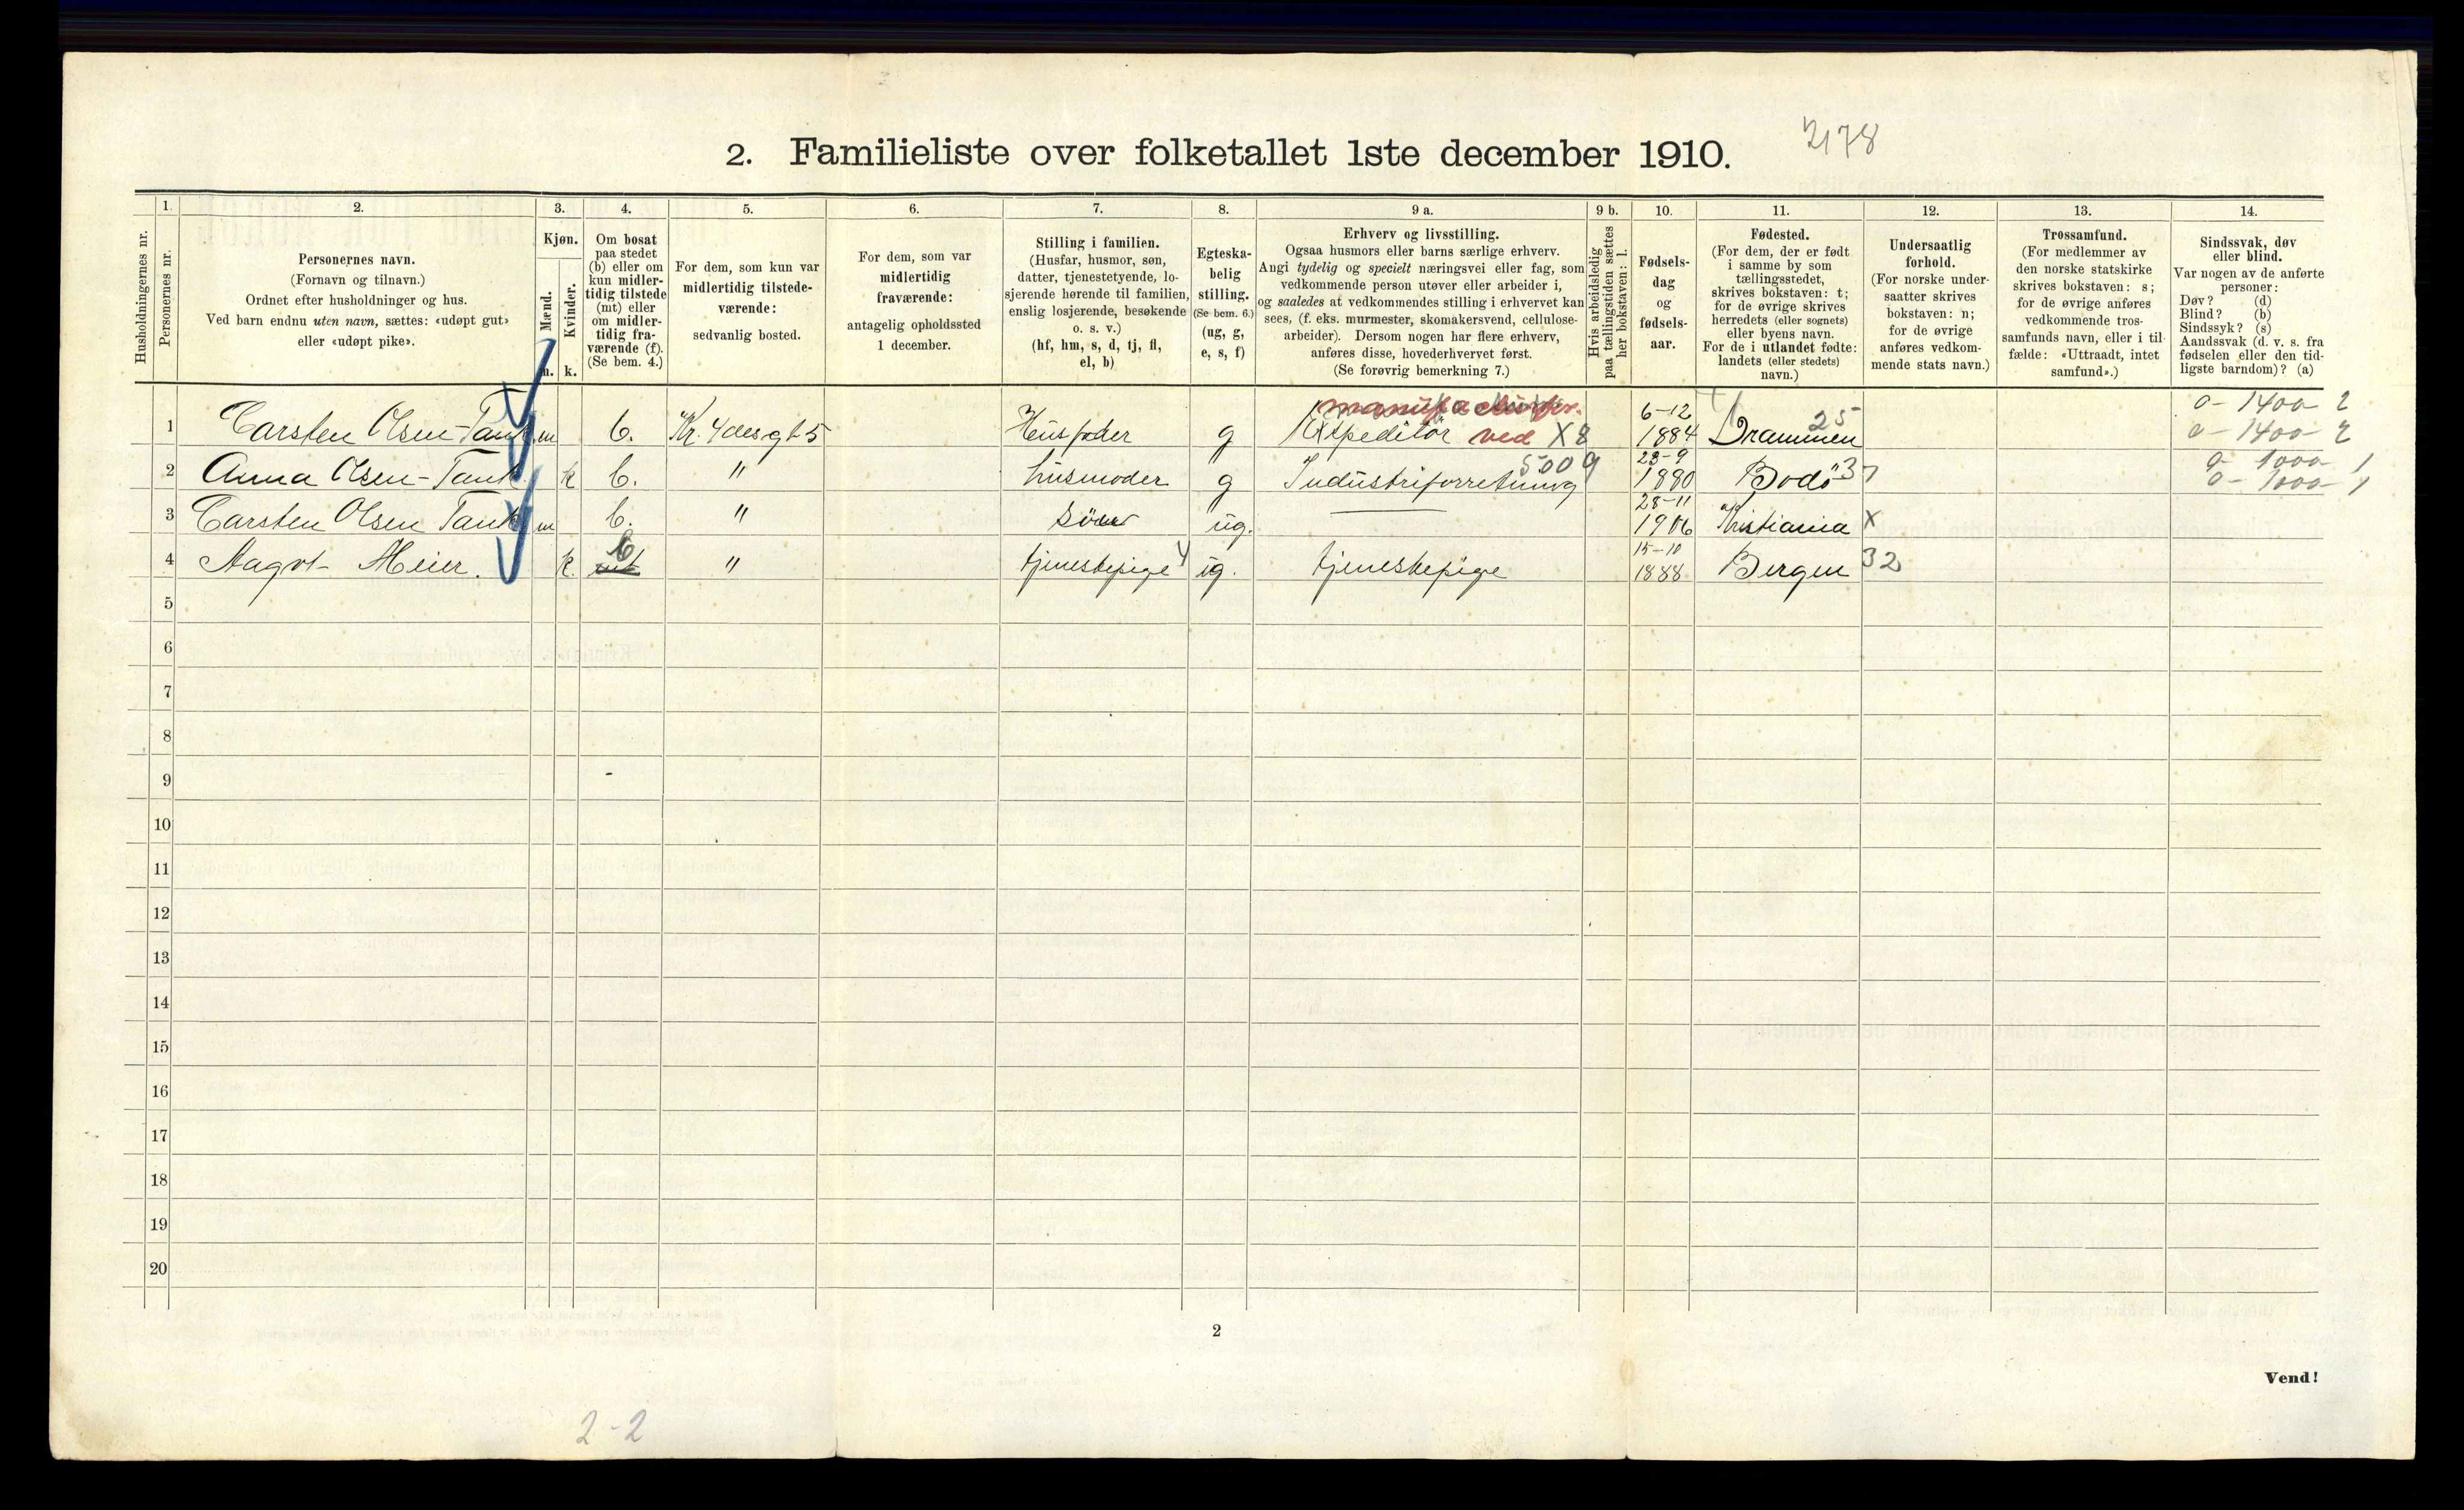 2. Familieliste over folketallet 1ste december 1910.
2178
Husholdningernes nr.
1.
Personernes nr.
2.
Personernes navn.
(Fornavn og tilnavn.)
Ordnet efter husholdninger og hus.
Ved barn endnu uten navn, sættes: «udøpt gut»
eller «udøpt pike».
3.
Kjøn.
Mænd.
Kvinder.
m. k.
4.
Om bosat
paa stedet
(b) eller om
kun midler-
tidig tilstede
(mt) eller
om midler-
tidig fra-
værende (f).
(Se bem. 4.)
5.
For dem, som kun var
midlertidig tilstede-
værende:
sedvanlig bosted.
6.
For dem, som var
midlertidig
fraværende:
antagelig opholdssted
1 december.
7.
Stilling i familien.
(Husfar, husmor, søn,
datter, tjenestetyende, lo-
sjerende hørende til familien,
enslig losjerende, besøkende
o. s. v.)
(hf, hm, s, d, tj, fl,
el, b)
8.
Egteska-
belig
stilling.
(Se bem. 6.)
(ug, g,
e, s, f)
9 a.
Erhverv og livsstilling.
Ogsaa husmors eller barns særlige erhverv.
Angi tydelig og specielt næringsvei eller fag, som
vedkommende person utøver eller arbeider i,
og saaledes at vedkommendes stilling i erhvervet kan
sees, (f. eks. murmester, skomakersvend, cellulose-
arbeider). Dersom nogen har flere erhverv,
anføres disse, hovederhvervet først.
(Se forøvrig bemerkning 7.)
9 b.
Hvis arbeidsledig
paa tællingstiden sættes
her bokstaven: l.
10.
Fødsels-
dag
og
fødsels-
aar.
11.
Fødested.
(For dem, der er født
i samme by som
tællingsstedet,
skrives bokstaven: t;
for de øvrige skrives
herredets (eller sognets)
eller byens navn.
For de i utlandet fødte:
landets (eller stedets)
navn.)
12.
Undersaatlig
forhold.
(For norske under-
saatter skrives
bokstaven: n;
for de øvrige
anføres vedkom-
mende stats navn.)
13.
Trossamfund.
(For medlemmer av
den norske statskirke
skrives bokstaven: s;
for de øvrige anføres
vedkommende tros-
samfunds navn, eller i til-
fælde: «Uttraadt, intet
samfund».)
14.
Sindssvak, døv
eller blind.
Var nogen av de anførte
personer:
Døv? (d)
Blind? (b)
Sindssyk? (s)
Aandssvak (d. v. s. fra
fødselen eller den tid-
ligste barndom)? (a)
manufacturfor. 6-12 25 0-1400-2
1 Carsten Olsen-Tank m b. Husfader g Expeditör ved X8 1884 Drammen 0-1400-2
5009 23-9 0-1000-1
2 Anna Olsen-Tank k b. " husmoder g Industriforretning 1880 Bodö 37 0-1000-1
28-11
3 Carsten Olsen Tank m b. " ug. 1906 Kristiania X
b 15-10
4 Meier. k. mt " tjenestepige 4 ug. tjenestepige 1888 Bergen 32
5
6
7
8
9
10
11
12
13
14
15
16
17
18
19
20
2
Vend!
2-2